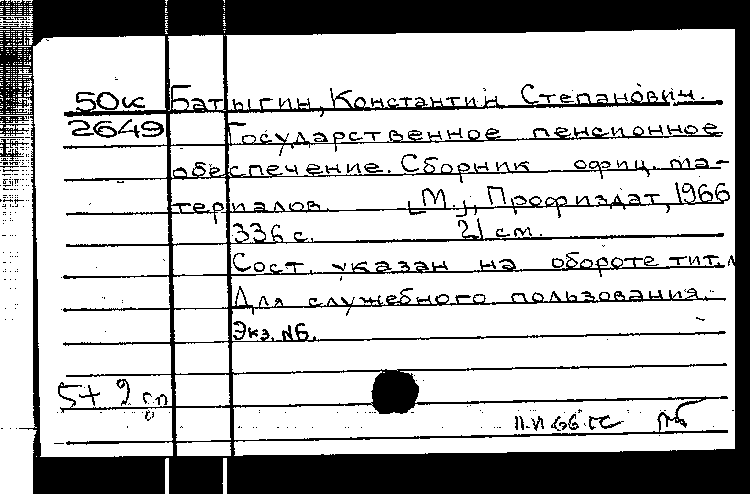 50к Батыгин, Константин Степанович.
2649 Государственное пенсионное
обеспечение. Сборник офиц. ма-
териалов. [М.], Профиздат, 1966
336 с. 21 см.
Сост. указан на обороте тит. л
Для служебного пользования.
Экз. №6.
5+2
11.VI 66 гс